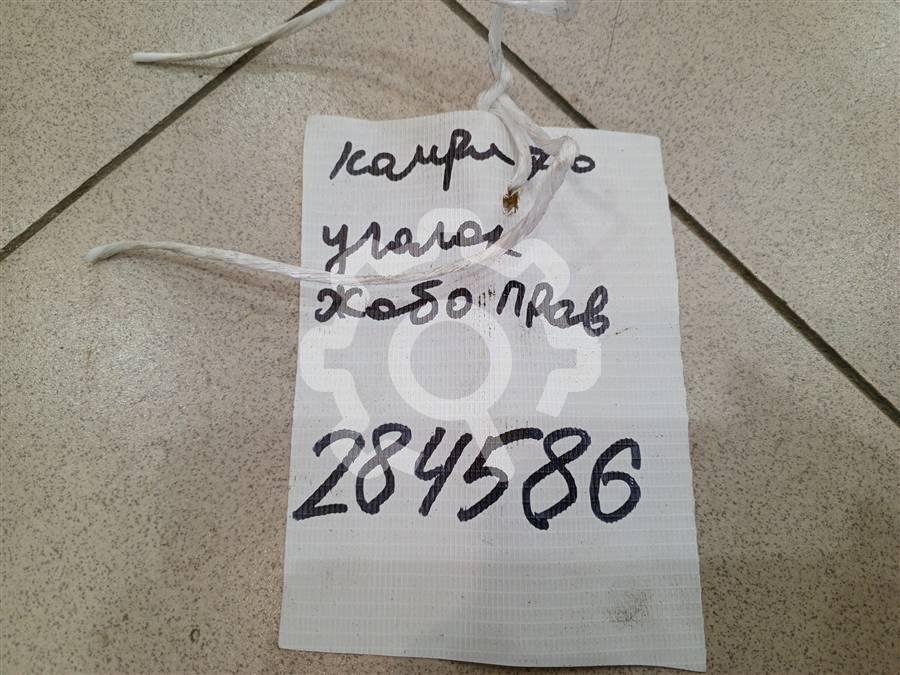 камри 70
уголок
жабо прав
284586